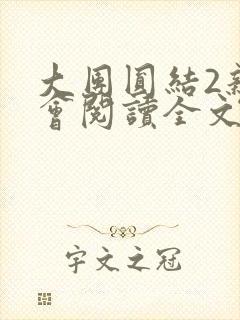 大団圓結2新
會閱讀全文
宇文之冠